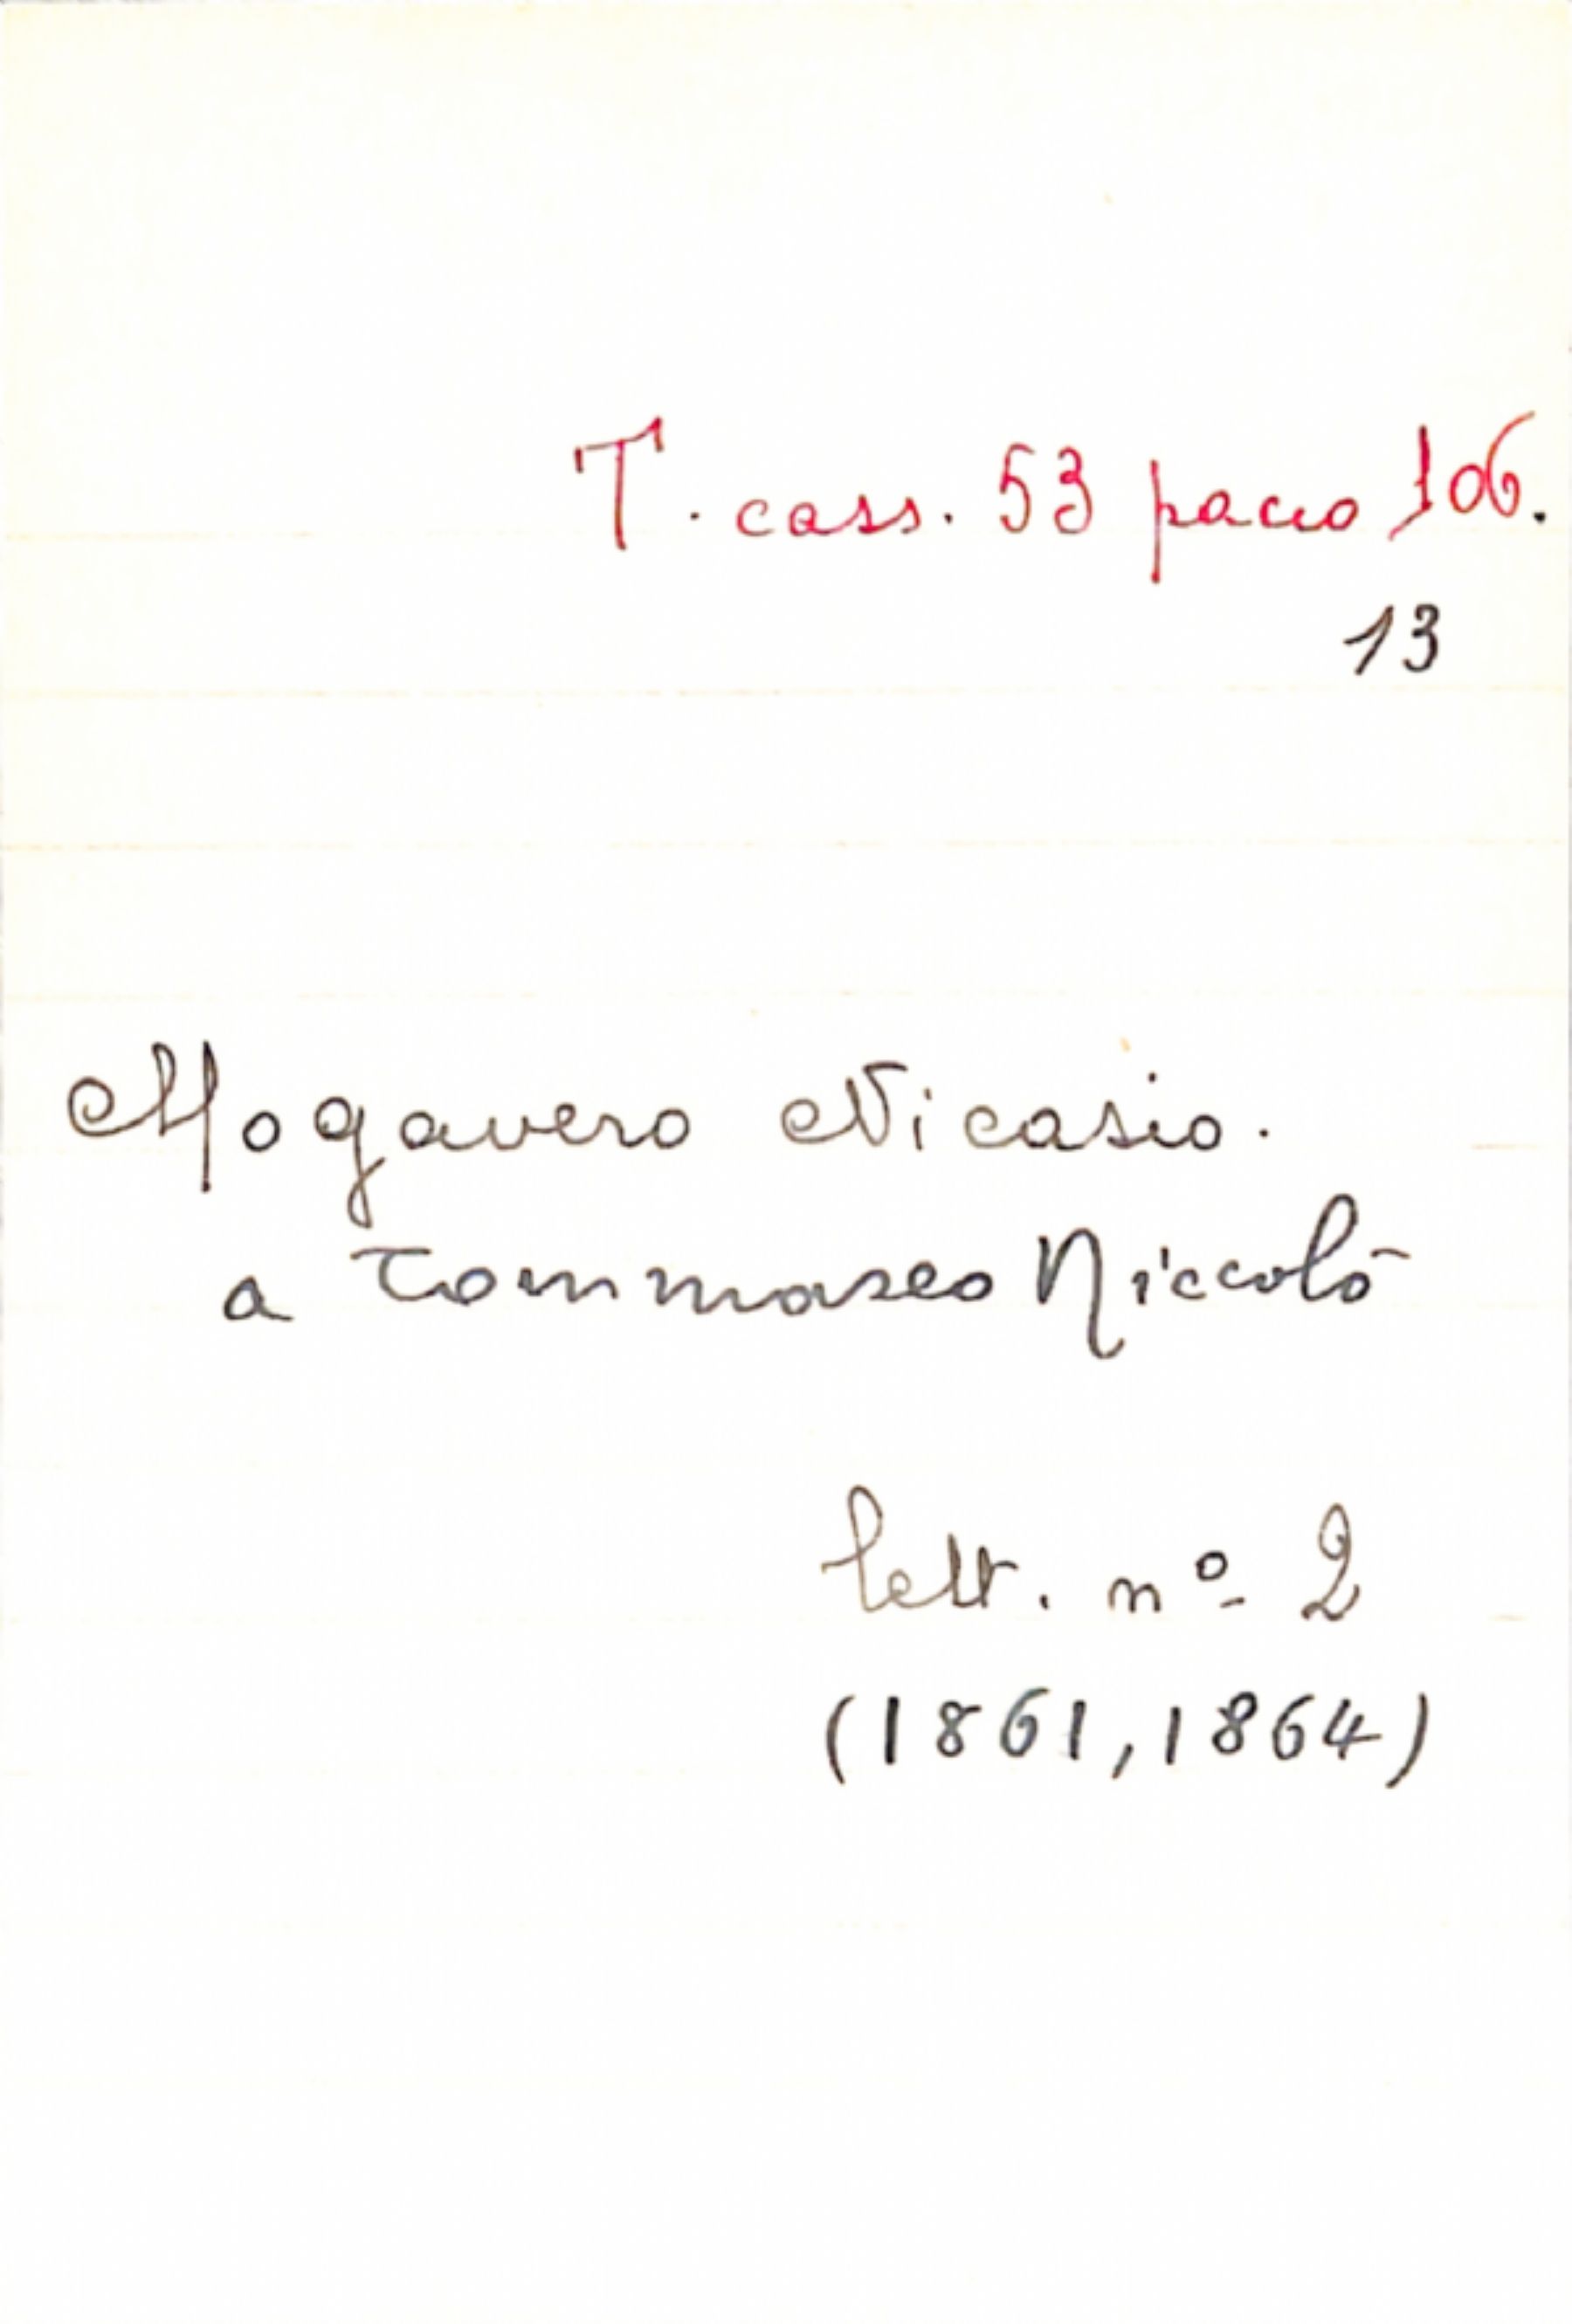 T. cass. 53 pacco 106.
13
Mogavero Nicasio.
a Tommaseo Niccolò
lett. nº 2
(1861, 1864)